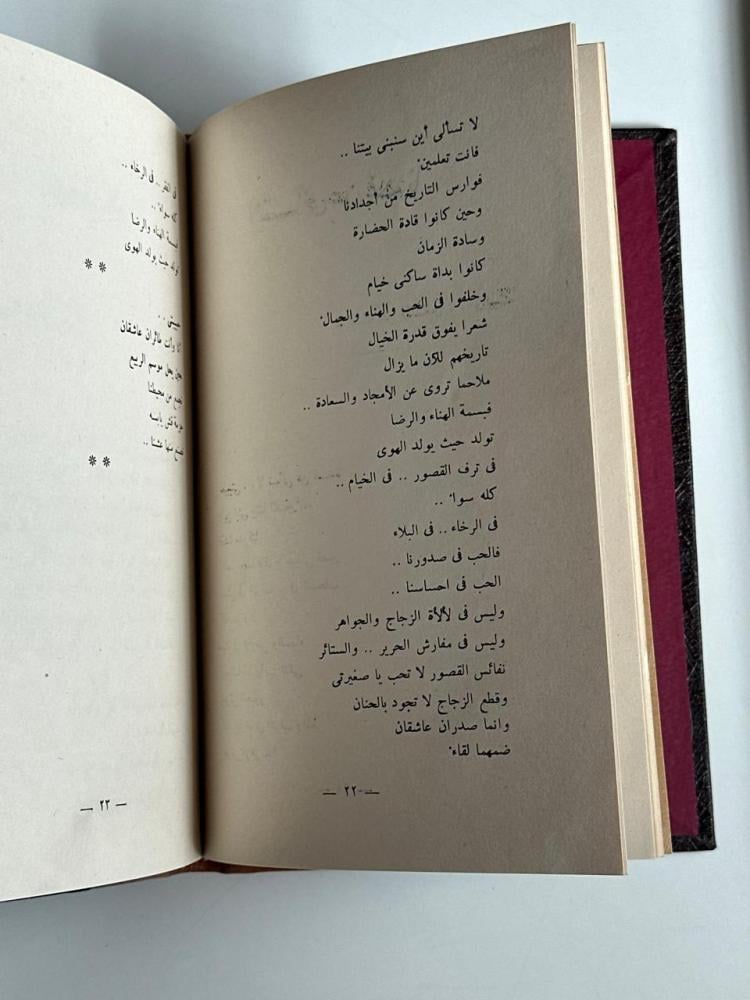 لا تسألى أين سنبنى بيتنا ..
فانت تعلمين
فوارس التاريخ من أجدادنا
وحين كانوا قادة الحضارة
وسادة الزمان
كانوا بداة ساكنى خيام
وخلفوا فى الحب والهناء والجمال
شعرا يفوق قدرة الخيال
تاريخهم للآن ما يزال
ملاحما تروى عن الأمجاد والسعادة ..
فبسمة الهناء والرضا
تولد حيث يولد الهوى
فى ترف القصور .. فى الخيام ..
كله سواء ..
فى الرخاء .. فى البلاء
فالحب فى صدورنا ..
الحب فى احساسنا ..
وليس فى لألأة الزجاج والجواهر
وليس فى مفارش الحرير .. والستائر
نفائس القصور لا تحب يا صغيرتى
وقطع الزجاج لا تجود بالحنان
وانما صدران عاشقان
ضمهما لقاء
— ٢٢ —
فى الفقر .. فى الرخاء ..
كله سواء ..
فبسمة الهناء والرضا
تولد حيث يولد الهوى
**
حبيبتى ..
أنا وأنت طائران عاشقان
حين يحل موسم الربيع
نجمع من محيطنا
حزمة قش يابسه
نصنع منها عشنا ..
**
— ٢٣ —